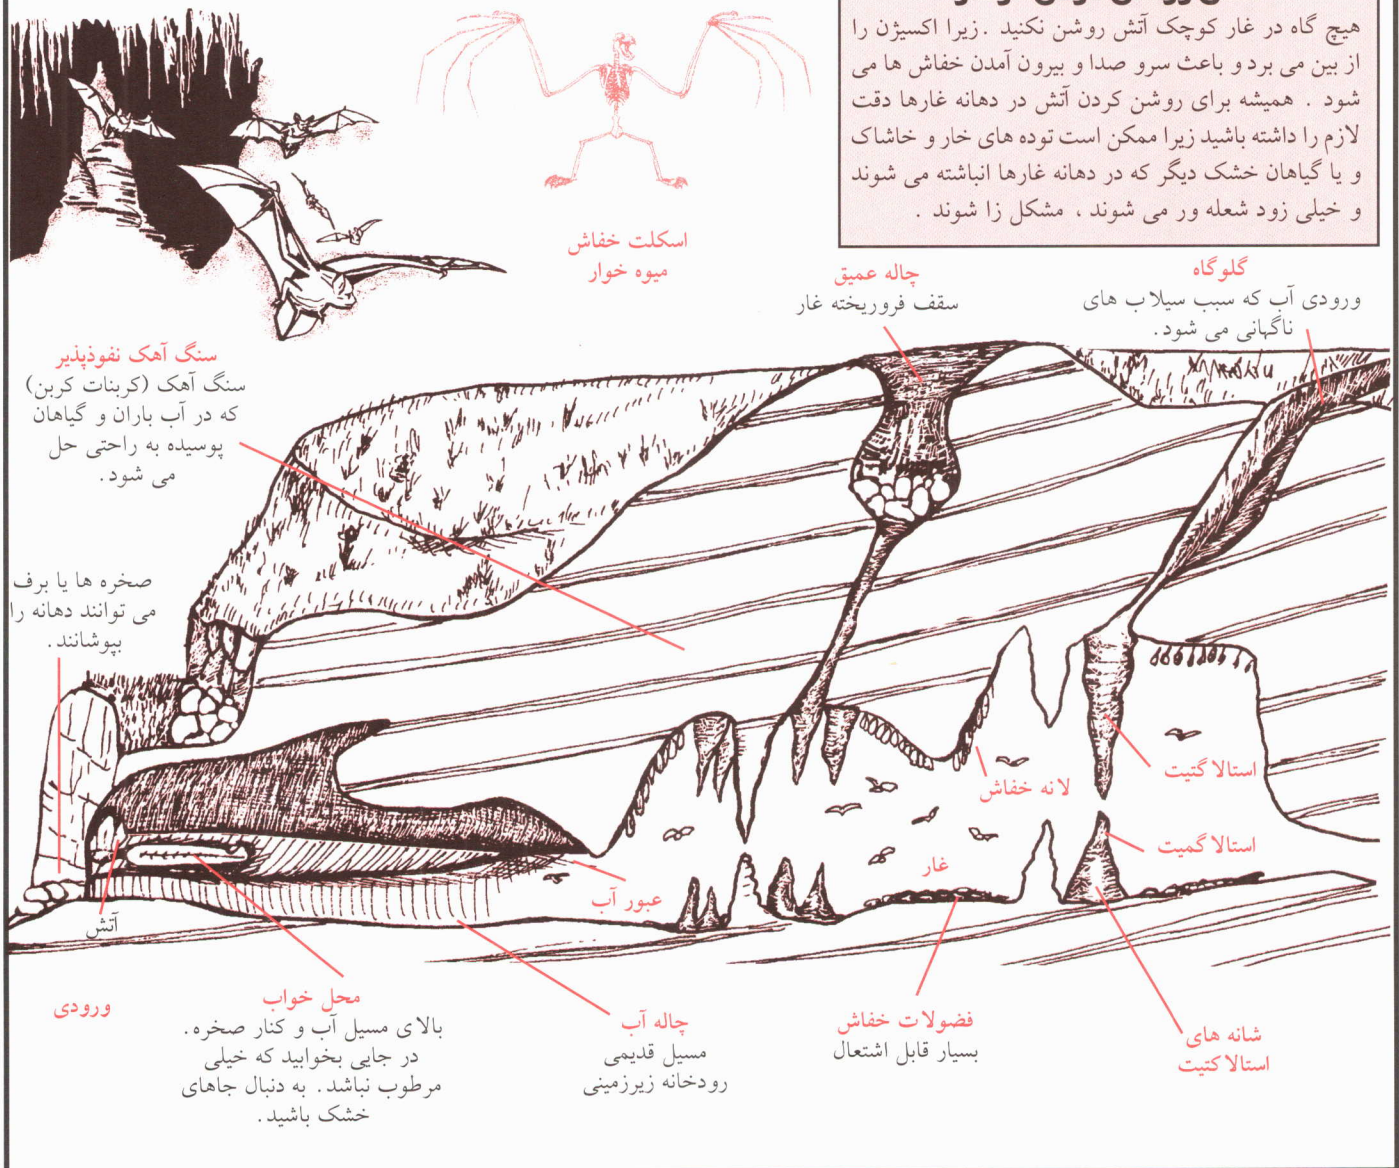 هیچ گاه در غار کوچک آتش روشن نکنید . زیرا اکسیژن را
از بین می برد و باعث سرو صدا و بیرون آمدن خفاش ها می
شود . همیشه برای روشن کردن آتش در دهانه غارها دقت
لازم را داشته باشید زیرا ممکن است توده های خار و خاشاک
و یا گیاهان خشک دیگر که در دهانه غارها انباشته می شوند
و خیلی زود شعله ور می شوند ، مشکل زا شوند .
اسکلت خفاش
میوه خوار
گلوگاه
ورودی آب که سبب سیلاب های
ناگهانی می شود .
چاله عمیق
سقف فروریخته غار
سنگ آهک نفوذپذیر
سنگ آهک (کربنات کربن)
که در آب باران و گیاهان
پوسیده به راحتی حل
می شود .
صخره ها یا برف
می توانند دهانه را
بپوشانند .
استالاگتیت
لانه خفاش
استالاگمیت
غار
عبور آب
آتش
ورودی
محل خواب
بالای مسیل آب و کنار صخره .
در جایی بخوابید که خیلی
مرطوب نباشد . به دنبال جاهای
خشک باشید .
چاله آب
مسیل قدیمی
رودخانه زیرزمینی
فضولات خفاش
بسیار قابل اشتعال
شانه های
استالاکتیت